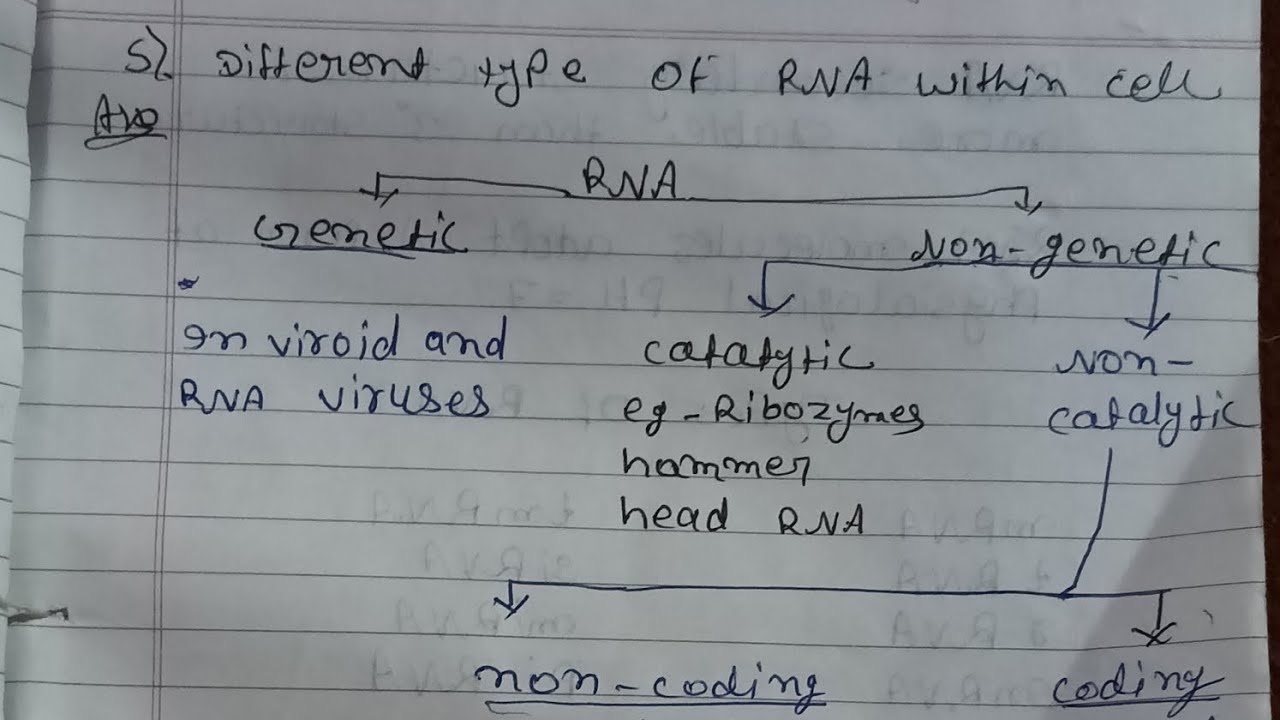 5) Different type of RNA within cell
Ans
RNA
Genetic
Non-genetic
In viroid and
RNA viruses
catalytic
eg - Ribozymes
hammer
head RNA
Non-
catalytic
non-coding
coding